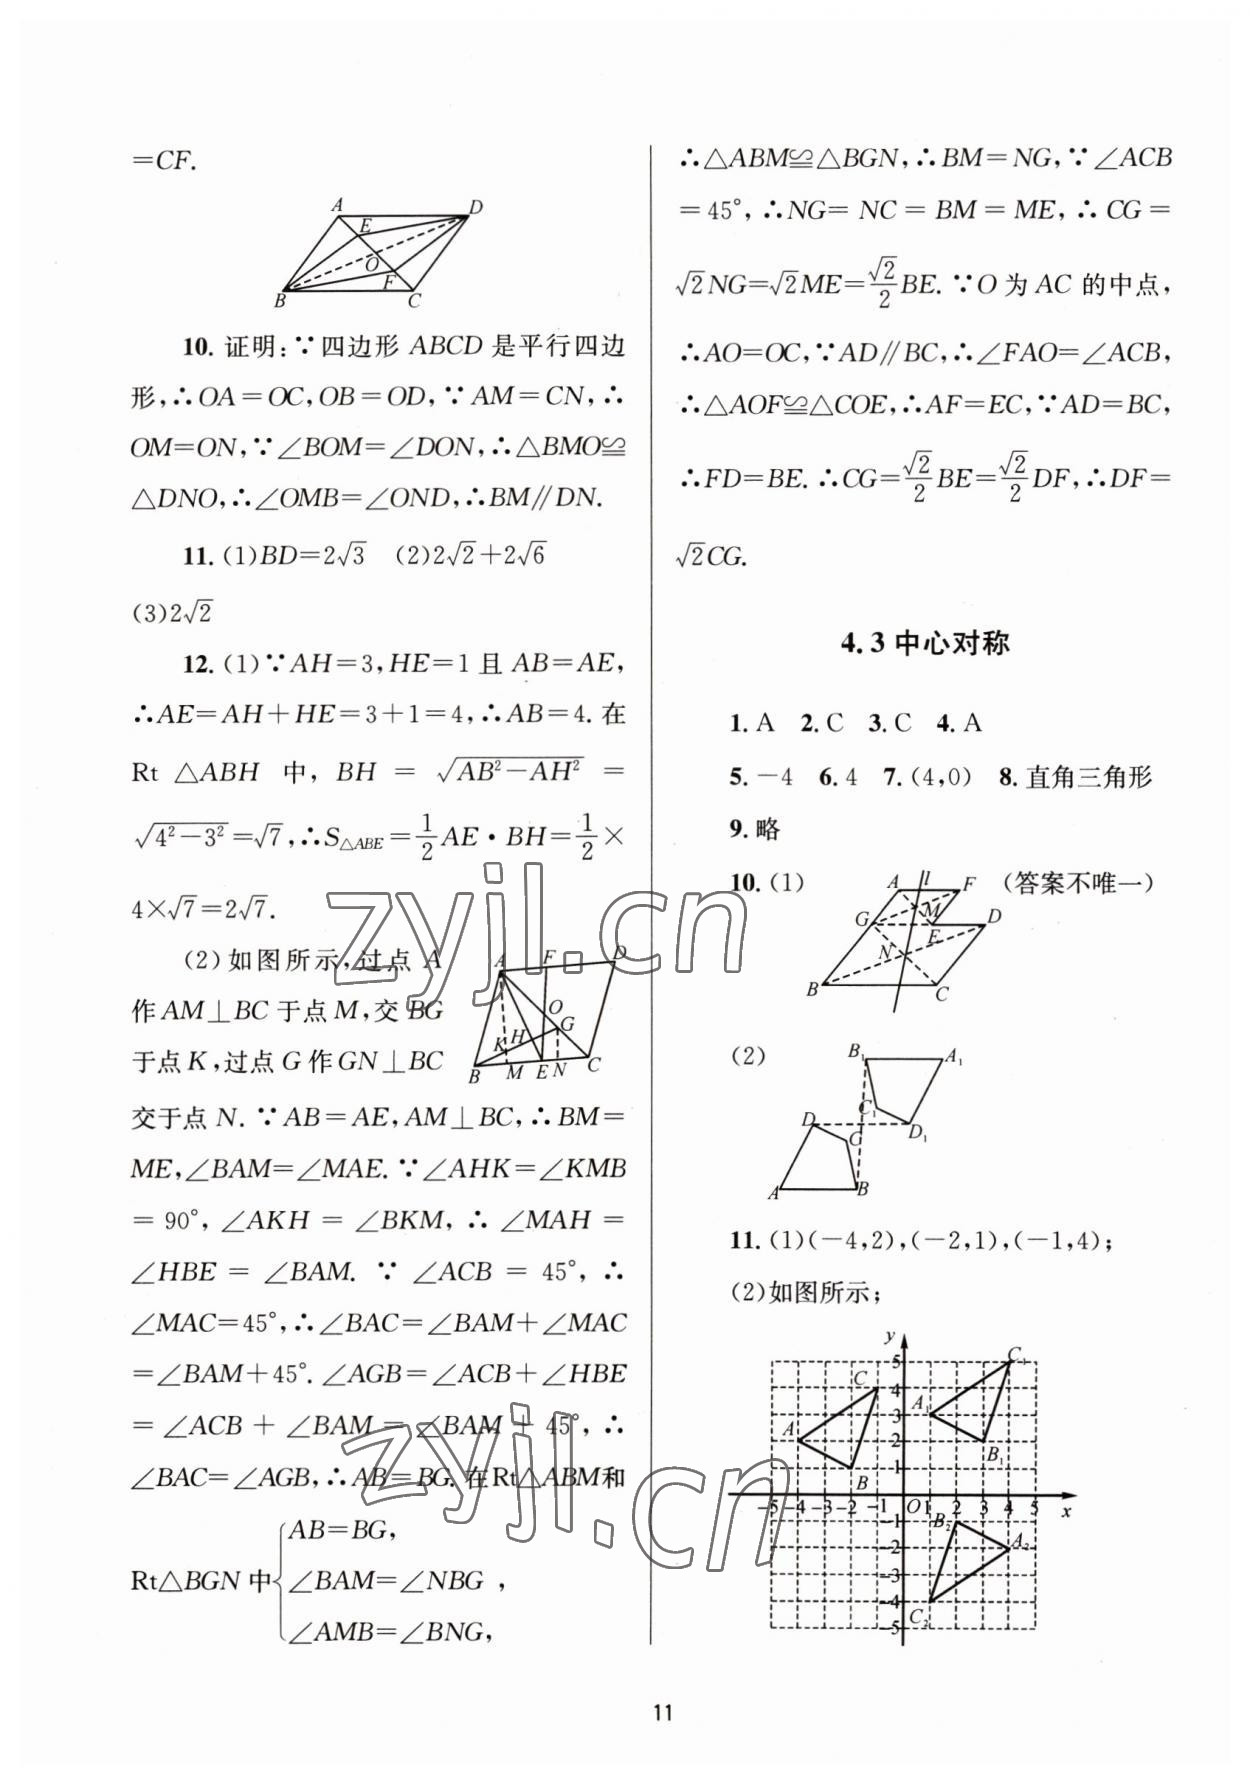 =CF.
A
D
E
O
F
B
C
10. 证明:∵四边形 ABCD 是平行四边
形,∴OA=OC,OB=OD,∵AM=CN,∴
OM=ON,∵∠BOM=∠DON,∴△BMO≌
△DNO,∴∠OMB=∠OND,∴BM∥DN.
11. (1)BD=2√3 (2)2√2+2√6
(3)2√2
12. (1)∵AH=3,HE=1 且 AB=AE,
∴AE=AH+HE=3+1=4,∴AB=4. 在
Rt △ABH 中, BH = √(AB²-AH²) =
√(4²-3²)=√7,∴S△ABE=1/2 AE·BH=1/2×
4×√7=2√7.
(2)如图所示,过点 A
作 AM⊥BC 于点 M,交 BG
于点 K,过点 G 作 GN⊥BC
A F D
O
G
K H
B M E N C
交于点 N. ∵AB=AE,AM⊥BC,∴BM=
ME,∠BAM=∠MAE. ∵∠AHK=∠KMB
=90°,∠AKH=∠BKM,∴∠MAH=
∠HBE=∠BAM. ∵∠ACB=45°,∴
∠MAC=45°,∴∠BAC=∠BAM+∠MAC
=∠BAM+45°. ∠AGB=∠ACB+∠HBE
=∠ACB+∠BAM=∠BAM+45°,∴
∠BAC=∠AGB,∴AB=BG. 在 Rt△ABM 和
Rt△BGN 中{AB=BG,
∠BAM=∠NBG ,
∠AMB=∠BNG,
∴△ABM≌△BGN,∴BM=NG,∵∠ACB
=45°,∴NG=NC=BM=ME,∴CG=
√2NG=√2ME=√2/2 BE. ∵O 为 AC 的中点,
∴AO=OC,∵AD∥BC,∴∠FAO=∠ACB,
∴△AOF≌△COE,∴AF=EC,∵AD=BC,
∴FD=BE. ∴CG=√2/2 BE=√2/2 DF,∴DF=
√2CG.
4.3 中心对称
1. A 2. C 3. C 4. A
5. -4 6. 4 7. (4,0) 8. 直角三角形
9. 略
10. (1) (答案不唯一)
A l F
G M D
E
N
B C
(2)
B₁ A₁
C₁
D D₁
C
A B
11. (1)(-4,2),(-2,1),(-1,4);
(2)如图所示;
y
5 C₁
C 4
A₁ 3
A 2 B₁
1
B
-5 -4 -3 -2 -1 O 1 2 3 4 5 x
-1 B₂
-2 A₂
-3
-4
C₂
-5
zyjl.cn
zyjl.cn
11